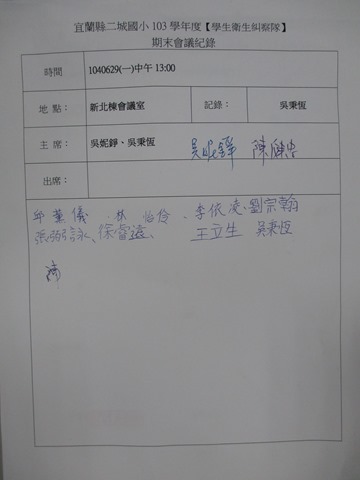 宜蘭縣二城國小 103 學年度【學生衛生糾察隊】
期末會議紀錄
時間 1040629(一)中午 13:00
地 點： 新北棟會議室 記錄： 吳秉恆
主 席： 吳妮錚、吳秉恆 吳妮錚
出席：
邱 儀、林 怡伶、李依凌、劉宗翰
張 詠、徐睿遠、 王立生 吳秉恆